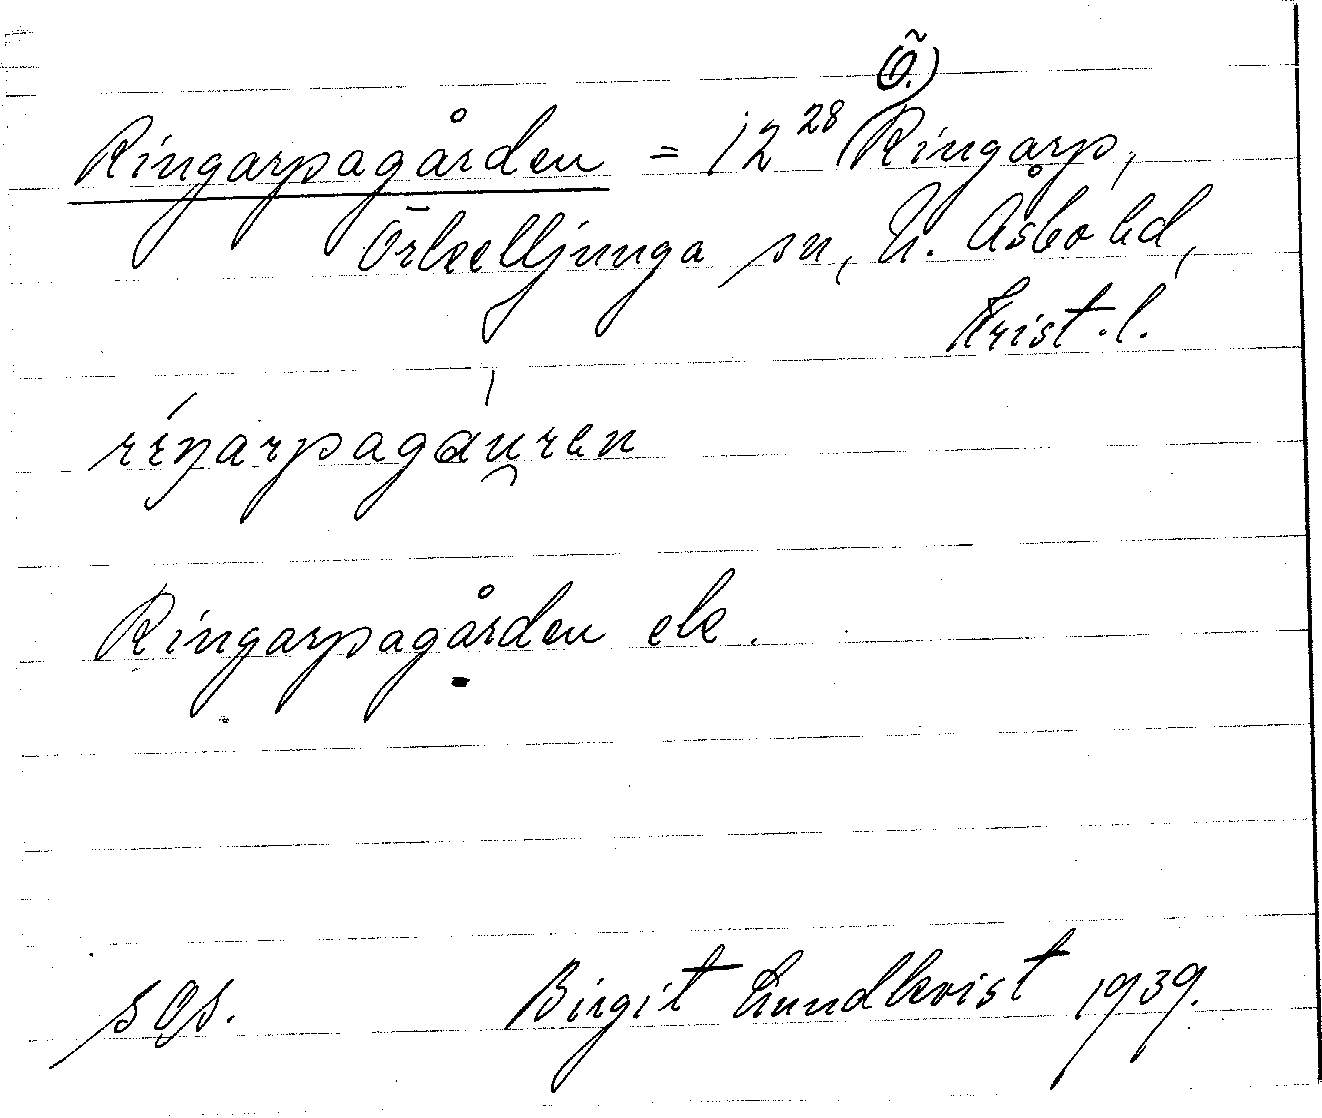 Ö.)
Ringarpagården = 12²⁸ (Ringarp,
Örkelljunga sn, N. Åsbo hd,
Krist. l.
Ringarpagården ek.
sOs. Birgit Lundkvist 1939.